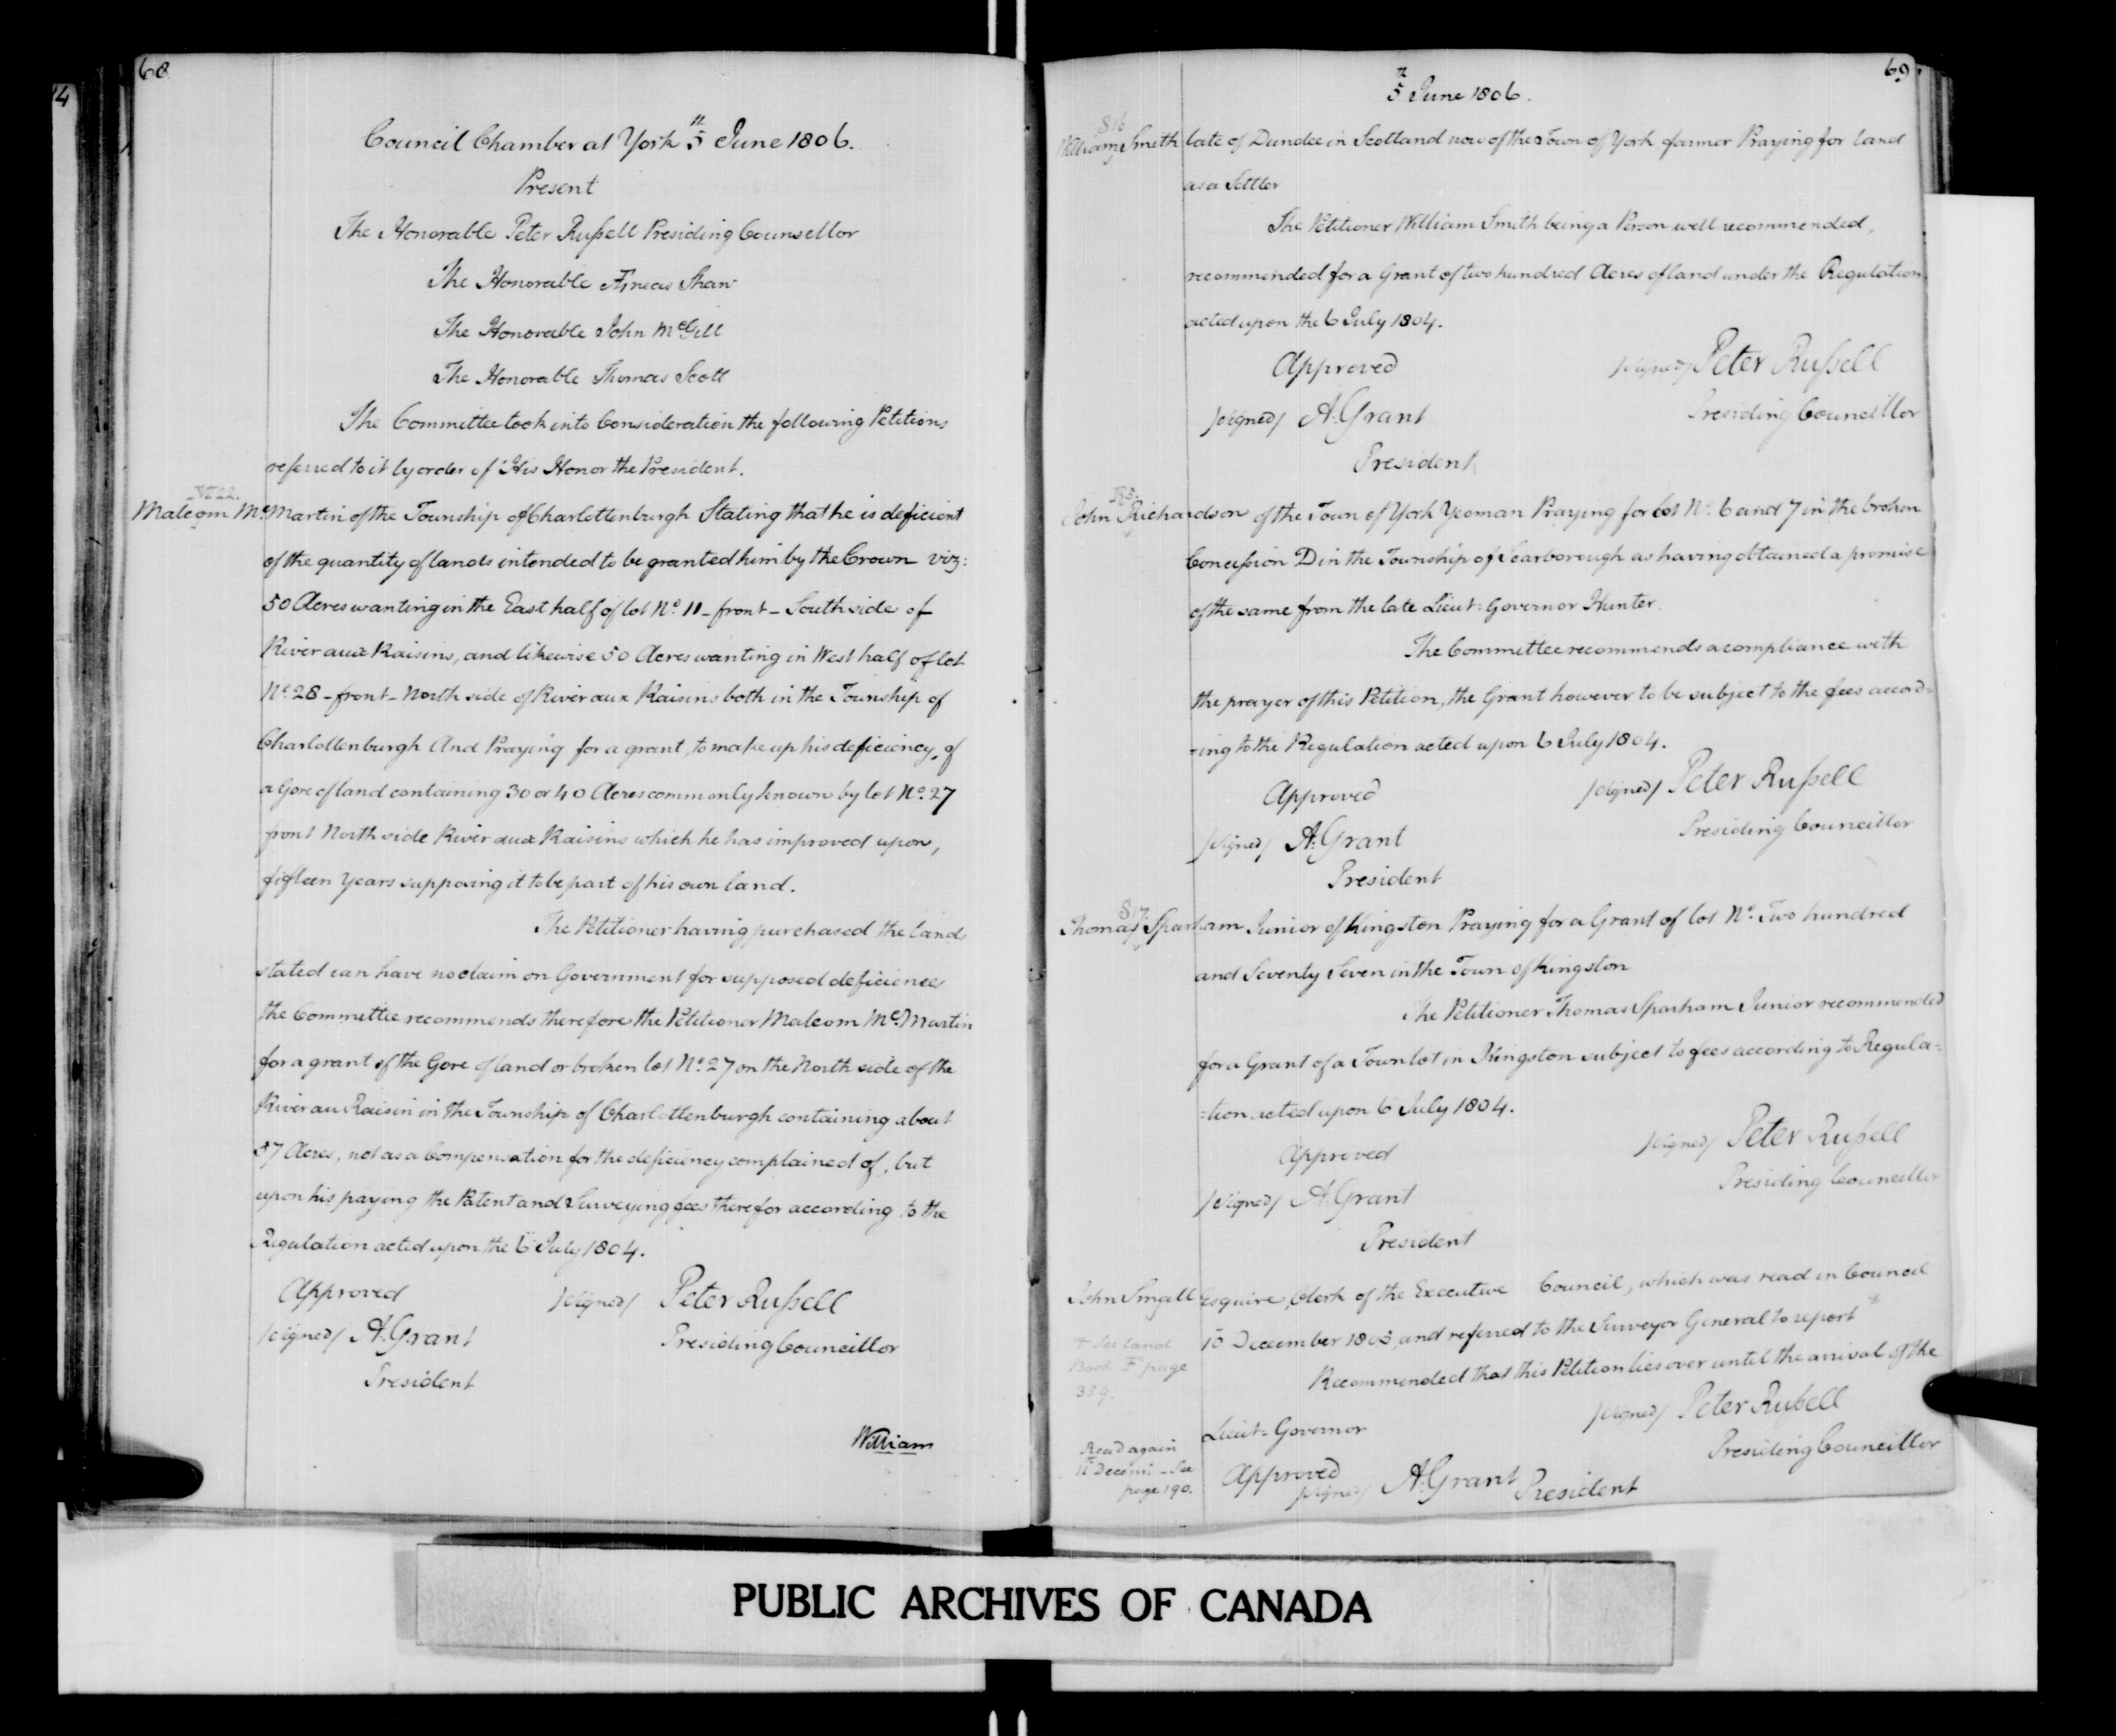 68
Council Chamber at York 5th June 1806.
Present
The Honorable Peter Russell Presiding Counsellor
The Honorable Æneas Shaw
The Honorable John McGill
The Honorable Thomas Scott
The Committee took into Consideration the following Petitions
referred to it by order of His Honor the President.
Malcom McMartin of the Township of Charlottenburgh Stating that he is deficient
of the quantity of lands intended to be granted him by the Crown viz:
50 Acres wanting in the East half of lot No. 11 - front - South side of
River aux Raisins, and likewise 50 Acres wanting in West half of lot
No. 28 - front - North side of River aux Raisins both in the Township of
Charlottenburgh And Praying for a grant, to make up his deficiency, of
a Gore of land containing 30 or 40 Acres commonly known by lot No. 27
front North side River aux Raisins which he has improved upon,
fifteen Years supposing it to be part of his own land.
The Petitioner having purchased the lands
stated can have no claim on Government for supposed deficiences
the Committee recommends therefore the Petitioner Malcom McMartin
for a grant of the Gore of land or broken lot No. 27 on the North side of the
River au Raisin in the Township of Charlottenburgh containing about
37 Acres, not as a Compensation for the deficiency complained of, but
upon his paying the Patent and Surveying fees therefor according to the
Regulation acted upon the 6 July 1804.
Approved
/signed/ Peter Russell
/signed/ A. Grant
Presiding Councillor
President
William
69
5th June 1806.
William Smith late of Dundee in Scotland now of the Town of York farmer Praying for land
as a Settler
The Petitioner William Smith being a Person well recommended,
recommended for a Grant of two hundred Acres of land under the Regulation
acted upon the 6 July 1804.
Approved
/signed/ Peter Russell
/signed/ A. Grant
Presiding Councillor
President
John Richardson of the Town of York Yeoman Praying for lot No. 6 and 7 in the broken
Concession D in the Township of Scarborough as having obtained a promise
of the same from the late Lieut: Governor Hunter.
The Committee recommends a compliance with
the prayer of this Petition, the Grant however to be subject to the fees accord=
-ing to the Regulation acted upon 6 July 1804.
Approved
/signed/ Peter Russell
/signed/ A. Grant
Presiding Councillor
President
817
Thomas Sparham Junior of Kingston Praying for a Grant of lot No. Two hundred
and Seventy Seven in the Town of Kingston
The Petitioner Thomas Sparham Junior recommended
for a Grant of a Town lot in Kingston subject to fees according to Regula=
=tion acted upon 6 July 1804.
Approved
/signed/ Peter Russell
/signed/ A. Grant
Presiding Councillor
President
John Small Esquire, Clerk of the Executive Council, which was read in Council
10 December 1805, and referred to the Surveyor General to report
+ See land
Book F page
359.
Recommended that this Petition lies over until the arrival of the
Lieut= Governor
/signed/ Peter Russell
Presiding Councillor
Read again
Decem: - See
page 190.
Approved
/signed/ A. Grant President
PUBLIC ARCHIVES OF CANADA